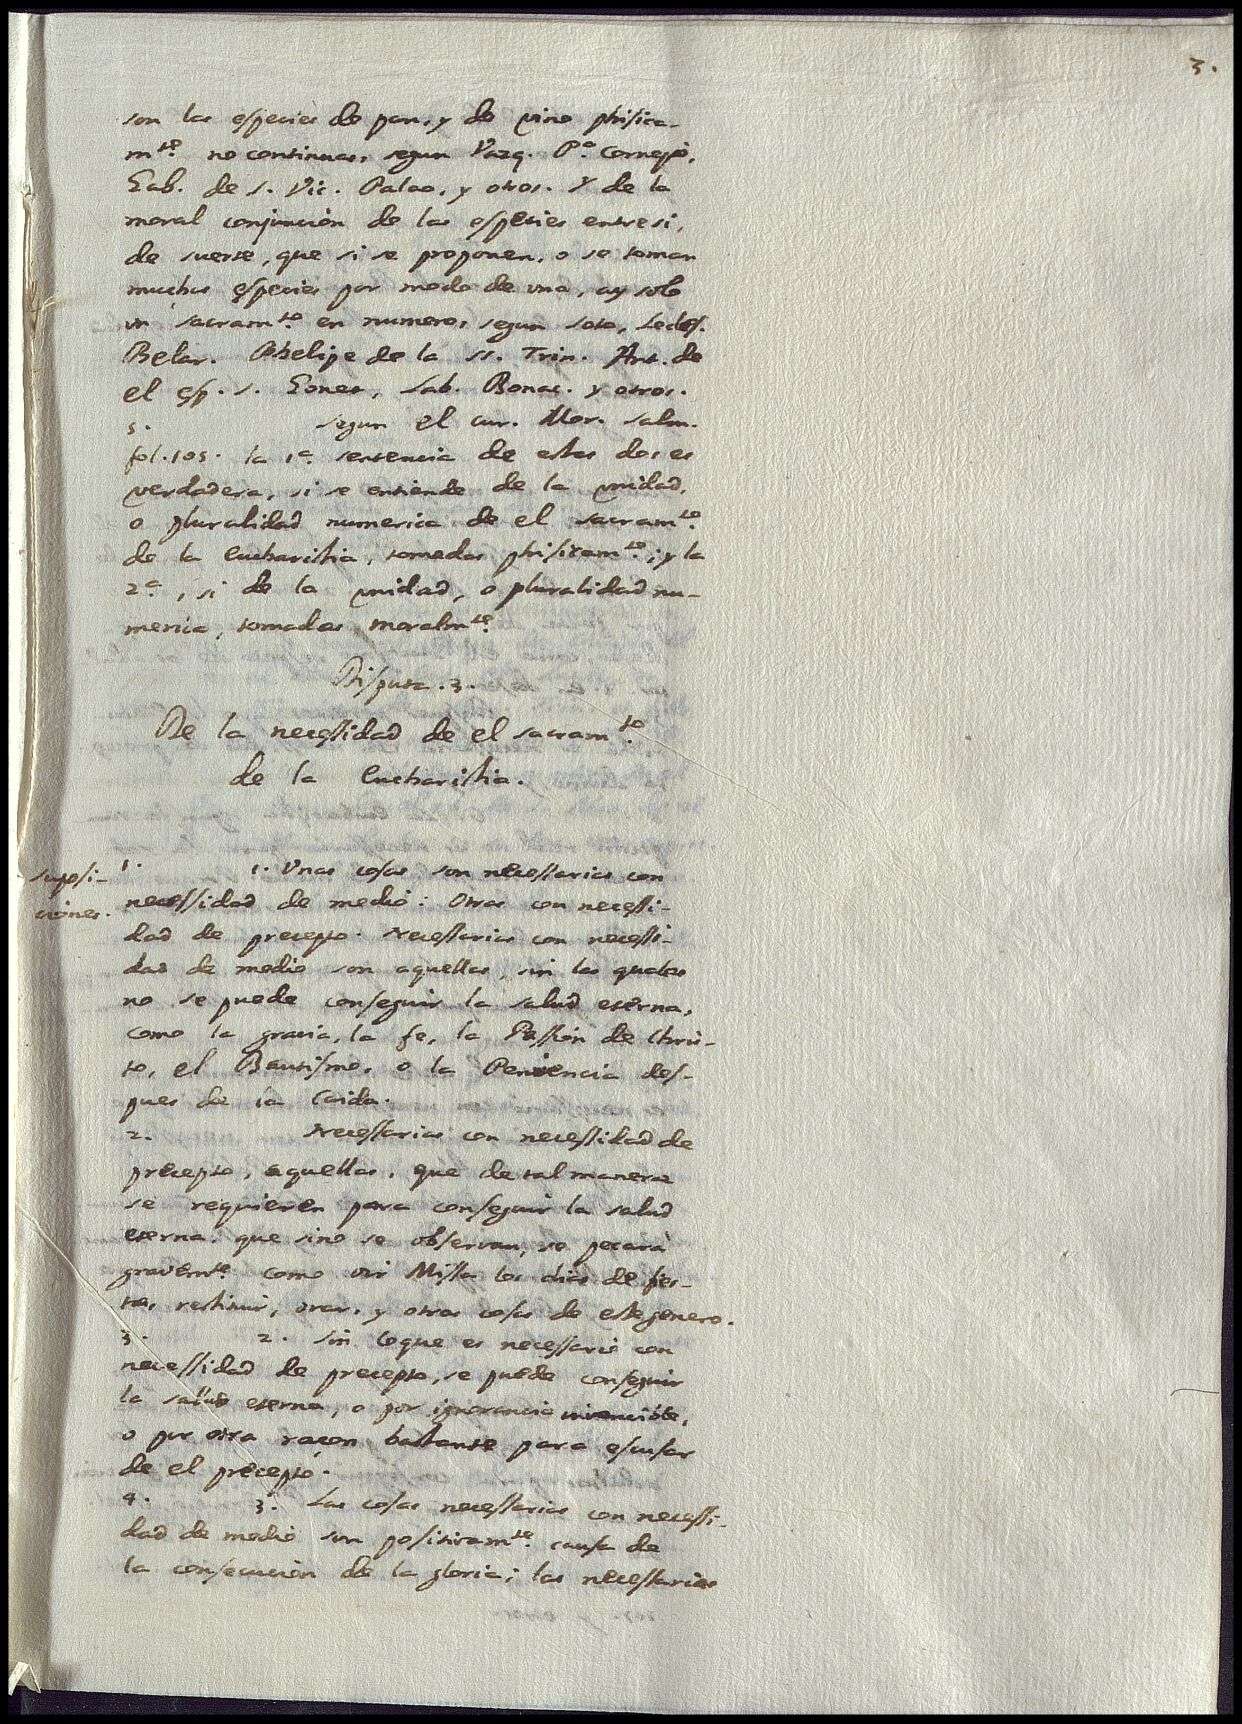 3.
son las especies de pan, y de vino phisica-
mte. no continuas, segun Vazq. Po. Cornejo,
Gab. de S. Vic. Palao, y otros. Y de la
moral conjuncion de las especies entresi,
de suerte, que si se proponen, o se toman
muchas especies por modo de una, ay solo
un sacramto. en numero, segun Soto, Ledes.
Belar. Phelipe de la SS. Trin. Ant. de
el esp. S. Gonet, Gab. Bonac. y otros.
5. segun el cur. Mor. Salm.
fol. 105. la 1a. sentencia de estas dos es
verdadera, si se entiende de la unidad,
o pluralidad numerica de el sacramto.
de la Eucharistia, tomadas phisicamte.; y la
2a., si de la unidad, o pluralidad nu-
merica, tomadas moralmte.
Disputa. 3.
De la necessidad de el sacramto.
de la Eucharistia.
suposi-
ciones.
1. 1. Unas cosas son necessarias con
necessidad de medio: Otras con necessi-
dad de precepto. Necessarias con necessi-
dad de medio son aquellas, sin las quales
no se puede conseguir la salud eterna,
como la gracia, la fe, la Passion de Chris-
to, el Bautismo, o la Penitencia des-
pues de la Caida.
2. Necessarias con necessidad de
precepto, aquellas, que de tal manera
se requieren para conseguir la salud
eterna, que sino se observan, se pecará
gravemte. como oir Missa los dias de fies-
tas, restituir, orar, y otras cosas de este genero.
3. 2. Sin loque es necessario con
necessidad de precepto, se puede conseguir
la salud eterna, o por ignorancia invencible,
o por otra raçon bastante para escusar
de el precepto.
4. 3. Las cosas necessarias con necessi-
dad de medio son positivamte. causa de
la consecucion de la gloria; las necessarias